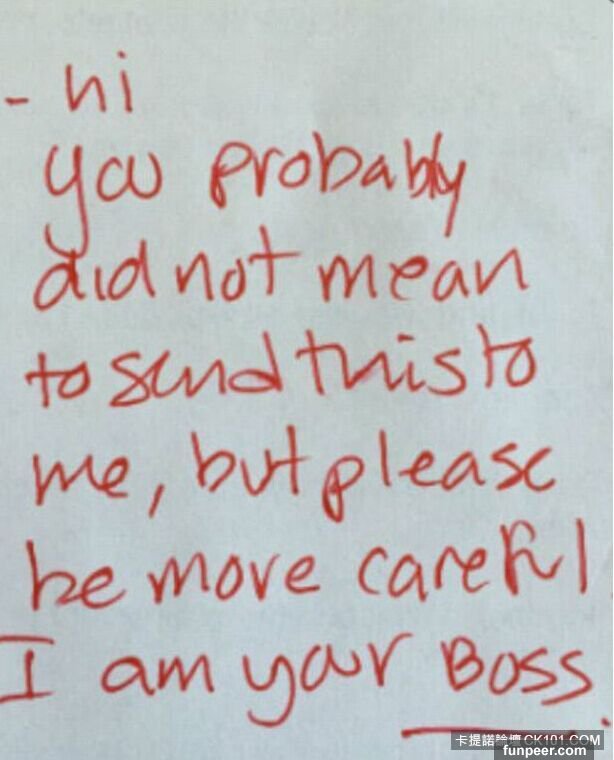 - hi
you probably
did not mean
to send this to
me, but please
be more careful
I am your Boss.
卡提諾論壇 CK101.COM
funpeer.com